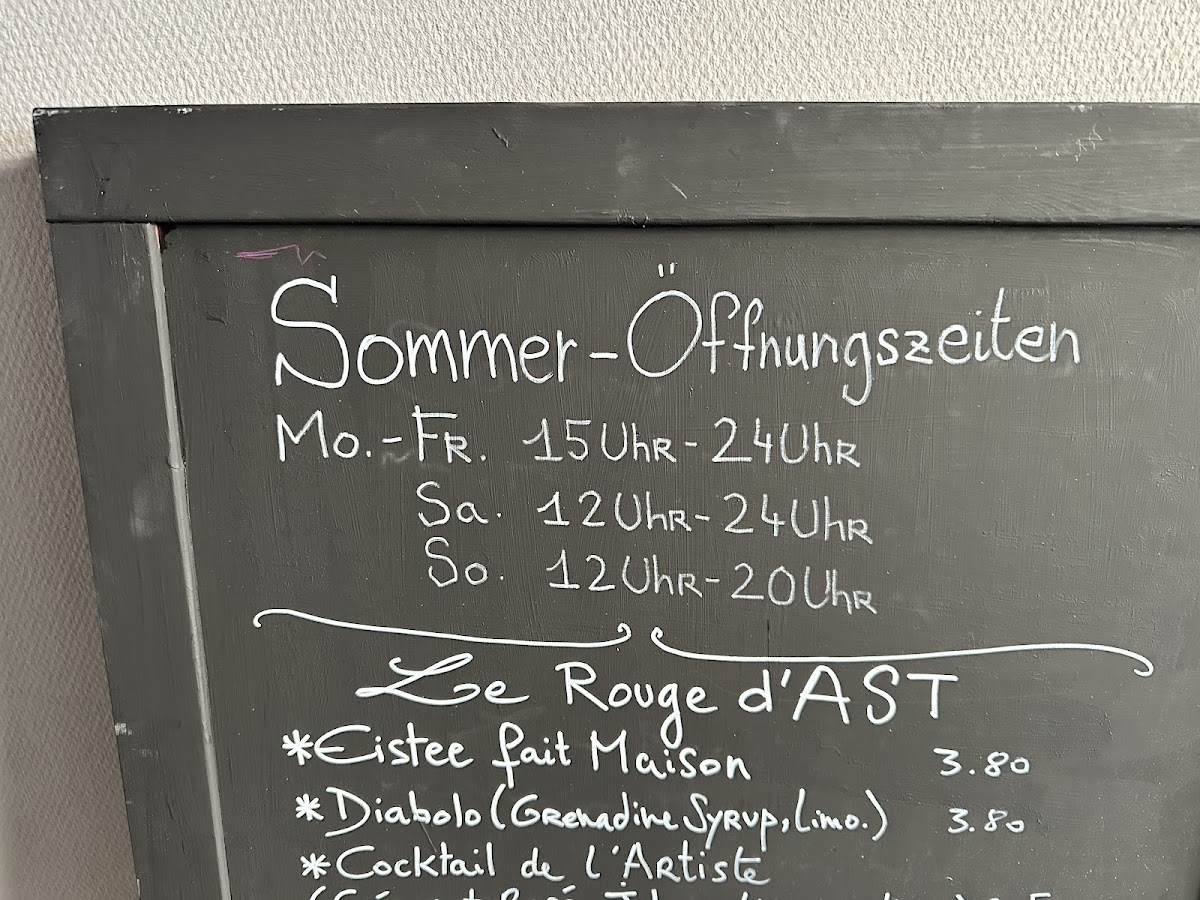 Sommer-Öffnungszeiten
Mo.-Fr. 15Uhr-24Uhr
Sa. 12Uhr-24Uhr
So. 12Uhr-20Uhr
Le Rouge d'AST
*Eistee fait Maison 3.80
*Diabolo (Grenadine Syrup, Limo.) 3.80
*Cocktail de l'Artiste